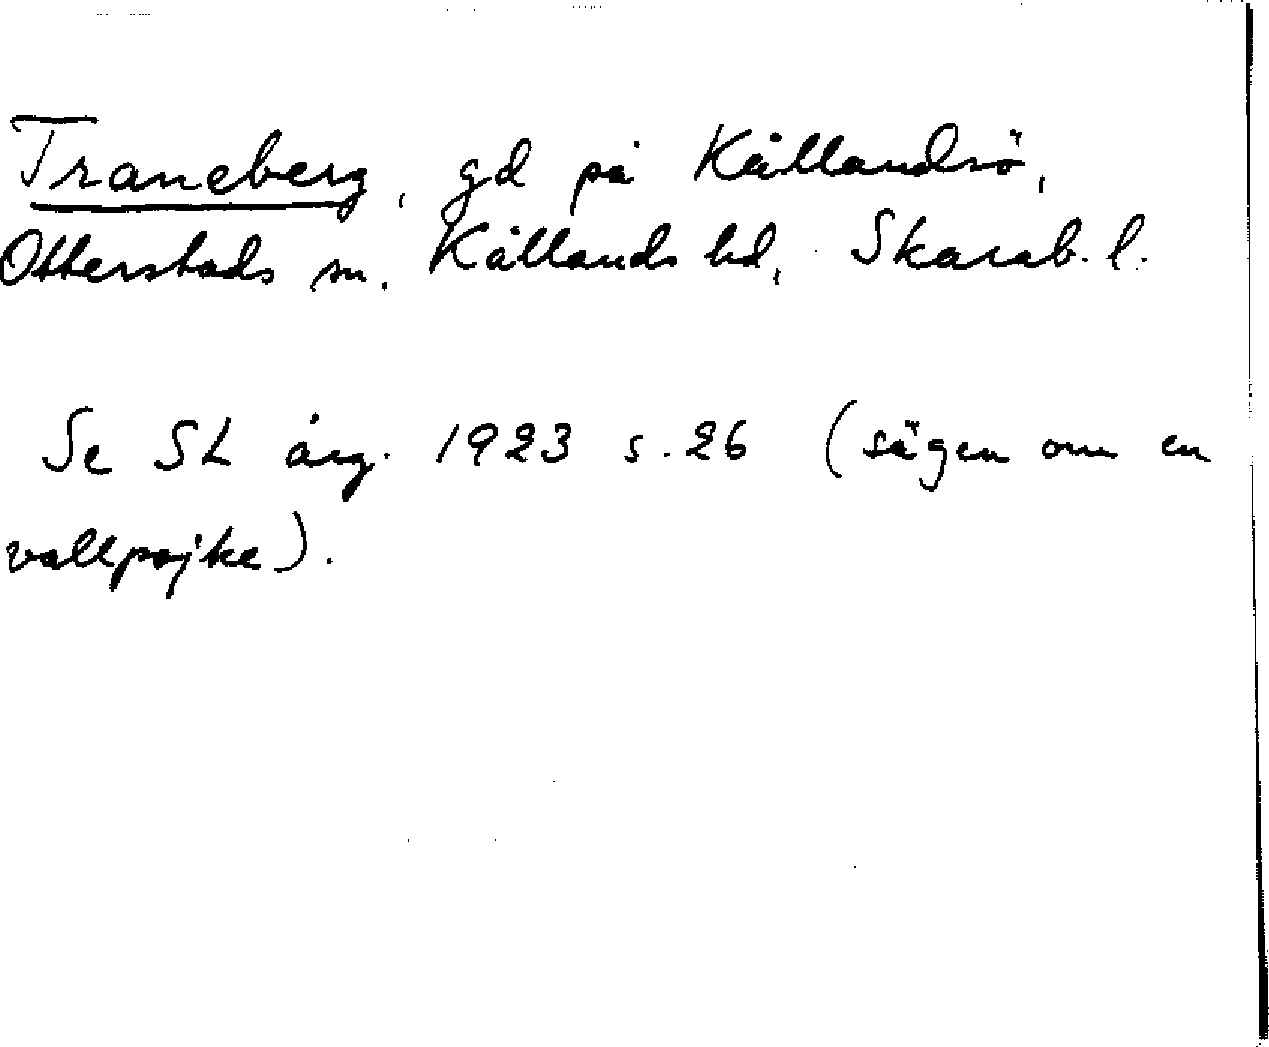 Traneberg, gd på Kållandsö,
Otterstads sn. Kållands hd, Skarab. l.
Se SL årg. 1923 s. 26 (sägen om en
vallpojke).